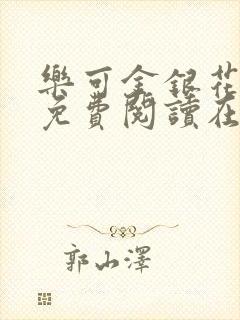 樂可金銀花
免費閱讀在
郭山澤